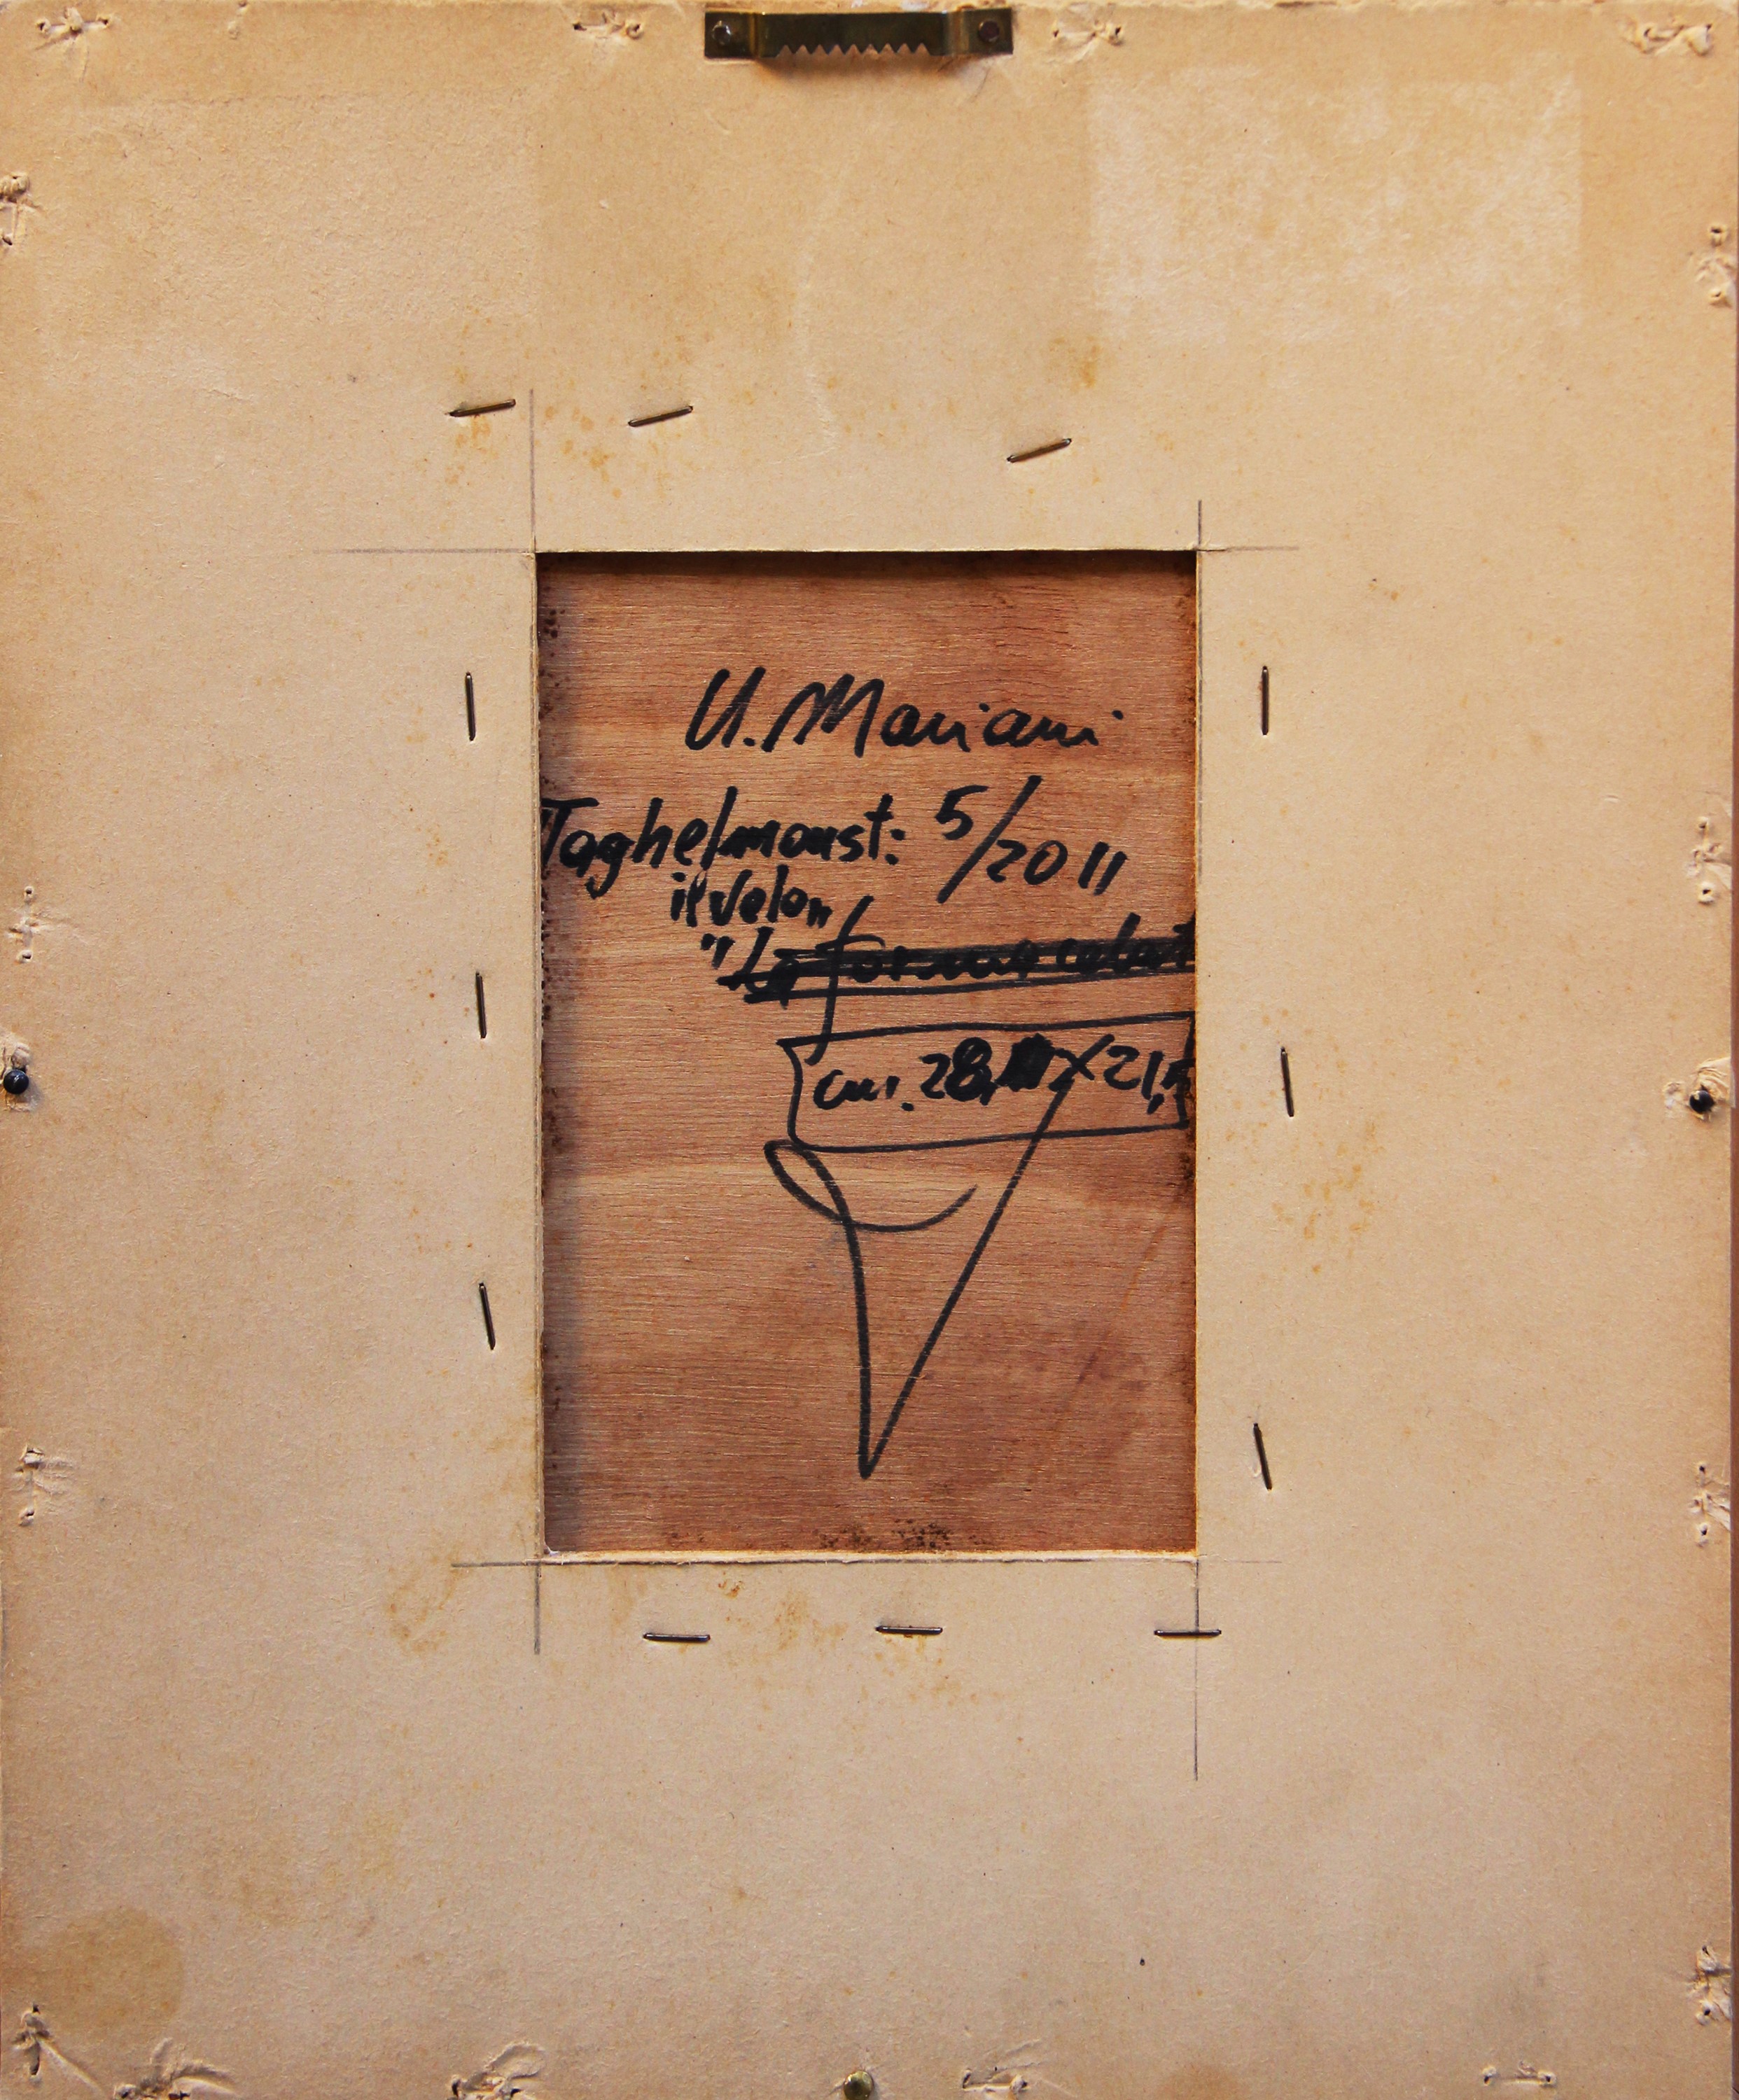 U. Mariani
Taghelmoust: 5/2011
il velo"
"La forma
cm. 28, x 21,5